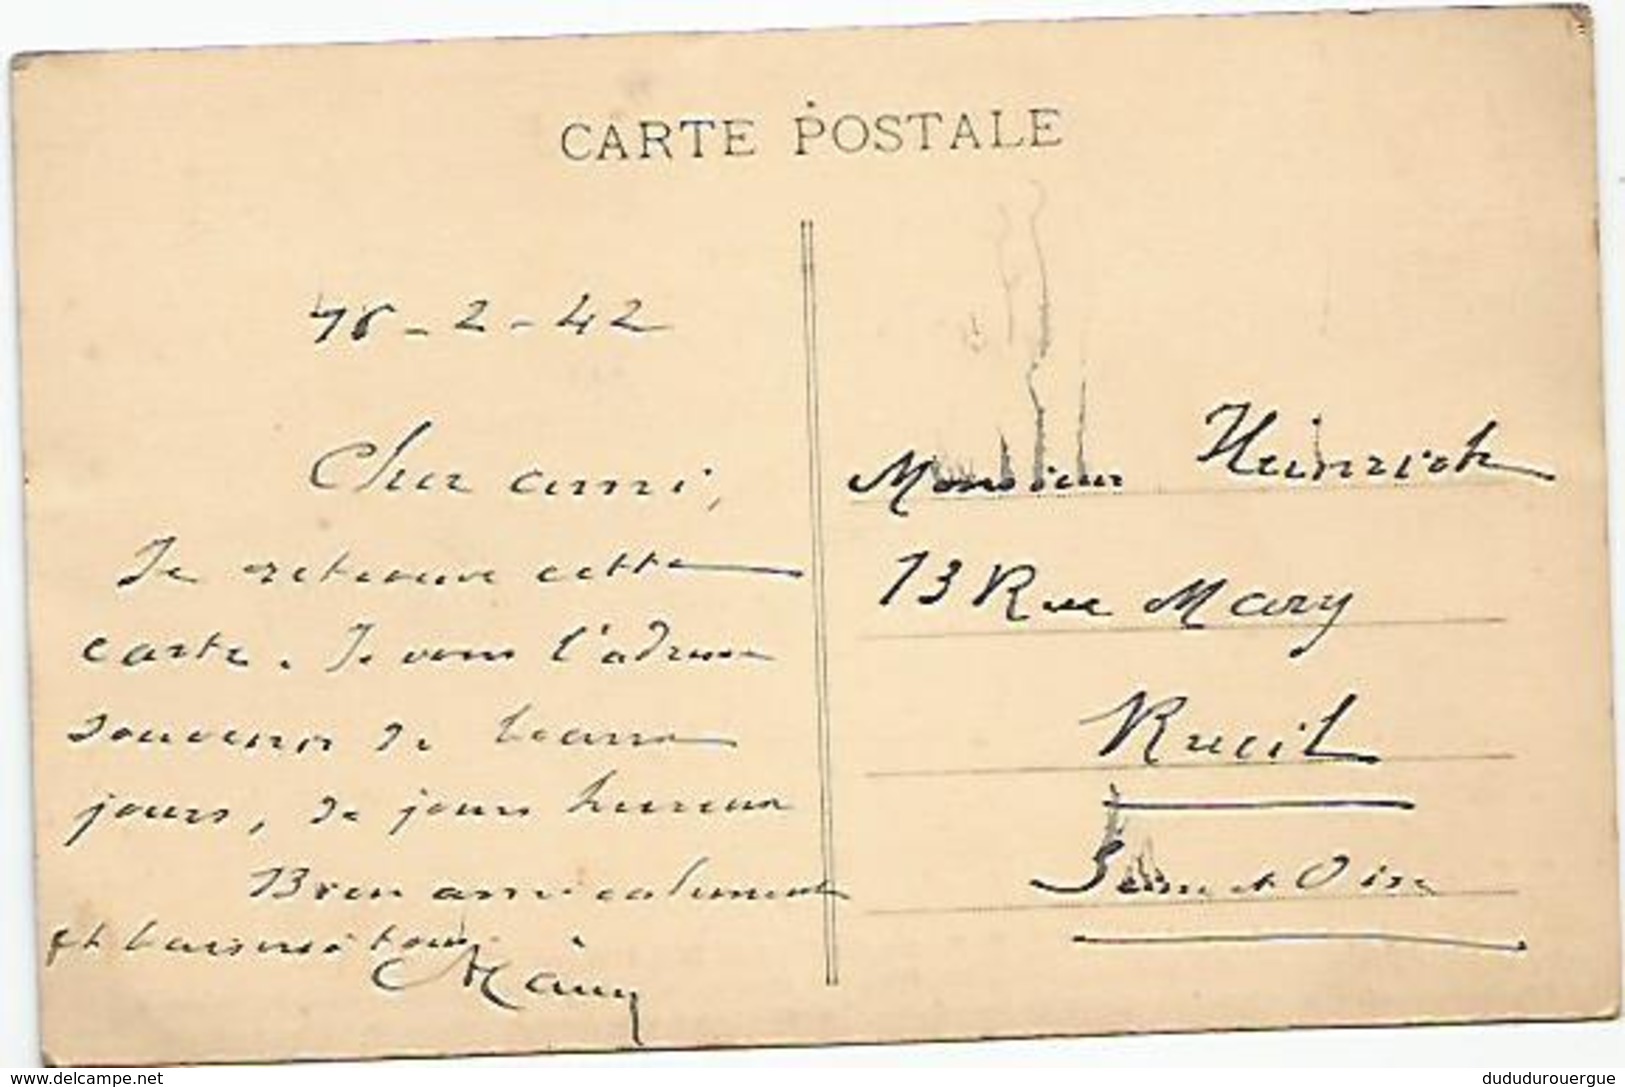 CARTE POSTALE
18-2-42
Cher ami,
Je retrouve cette
carte. Je vous l'adresse
souvenir de beaux
jours, de jours heureux
Bien amicalement
et baisers à tous.
Monsieur Heinrich
13 Rue Mary
Rueil
Seine et Oise
www.delcampe.net
dududurouergue